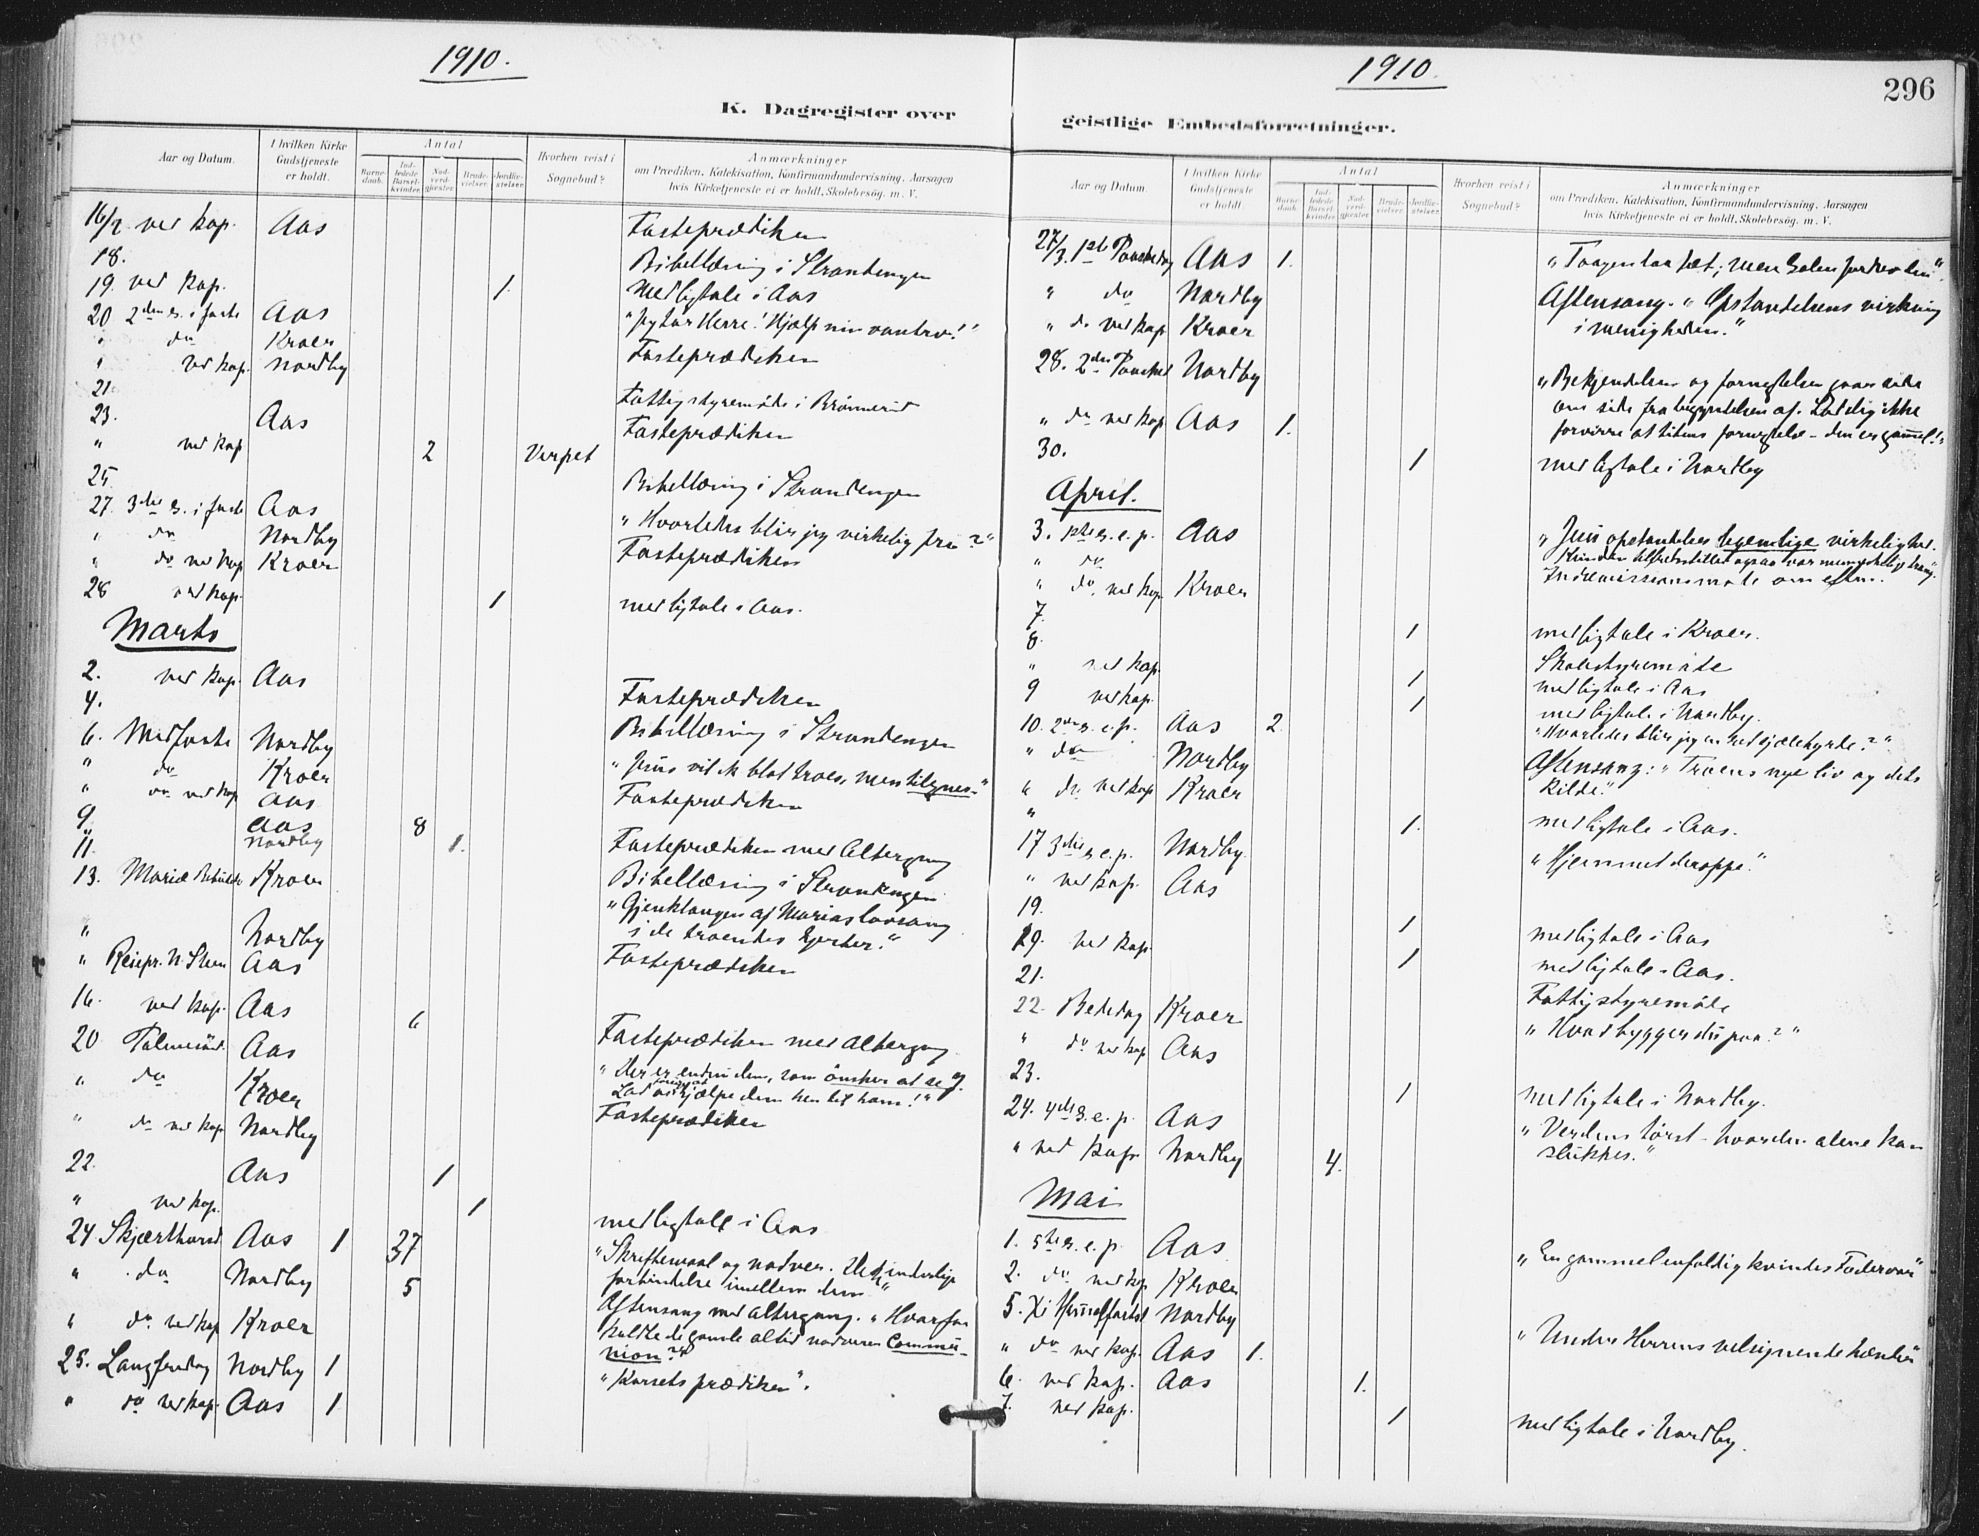 1910.
K. Dagregister over
Aar og Datum.
I hvilken Kirke Gudstjeneste er holdt.
Antal
Barnedaab.
Indledede Barselkvinder.
Nadverdgjester.
Brudevielser.
Jordfæstelser.
Hvorhen reist i Sognebud?
Anmærkninger
om Prædiken, Katekisation, Konfirmandundervisning, Aarsagen
hvis Kirketjeneste ei er holdt, Skolebesøg, m. V.
16/2 ved kap. Aas Fasteprædiken
18. Bibellæsning i Strandengen
19. ved kap. 1. Med ligtale i Aas
20 2den s. i faste Aas "Jeg tror Herre! Hjælp min vantro!"
" do Kroer
" ved kap. Nordby Fasteprædiken
21. Fattigstyremöde i
23. Aas Fasteprædiken
" ved kap 2 Verpet
25. Bibellæsning i Strandengen
27. 3die s. i faste Aas "Hvorledes blir jeg virkelig fri?"
" do Nordby
" do ved kap Kroer Fasteprædiken
28 ved kap. 1 med ligtale i Aas.
Marts
2. ved kap. Aas Fasteprædiken
4. Bibellæsning i Strandengen
6. Midfaste Nordby "Jesus vil ik blot troes, men tilegnes."
" do Kroer
" do ved kap Aas Fasteprædiken
9. Aas 8 Fasteprædiken med Altergang
" Nordby 1.
11. Bibellæsning i Strandengen
13. Mariæ Kroer "Gjenklangen af Marias lovsang
i de troendes hjerter."
" Nordby
" Reisepr. N. Steen Aas Fasteprædiken
16. ved kap. Aas 6 Fasteprædiken med Altergang
20 Palmesönd. Aas "Der er endnu dem, som önsker at se J.
Lad os hjælpe dem hen til ham!"
" do Kroer
" do ved kap Nordby Fasteprædiken
22. Aas 1
" ved kap. 1 med ligtale i Aas
24 Skjærthorsd Aas 1 37 "Skriftemaal og nadver. Den inderlige
forbindelse imellem dem"
" do Nordby 5 Aftensang med altergang. "Hvorfor
kaldte de gamle altid nadveren Commu-
nion?"
" do ved kap Kroer
25. Langfredag Nordby 1 "Korsets prædiken".
" do ved kap. Aas 1
1910.
296
geistlige Embedsforretninger.
Aar og Datum.
I hvilken Kirke Gudstjeneste er holdt.
Antal
Barnedaab.
Indledede Barselkvinder.
Nadverdgjester.
Brudevielser.
Jordfæstelser.
Hvorhen reist i Sognebud?
Anmærkninger
om Prædiken, Katekisation, Konfirmandundervisning, Aarsagen
hvis Kirketjeneste ei er holdt, Skolebesøg, m. V.
27/3. 1ste Paaskedag Aas 1. "Taagen laa tæt; men Solen fordrev den."
" do Nordby Aftensang. "Opstandelsens virkning
i menigheden."
" do ved kap Kroer
28. 2den Paasked Nordby "Bekjendelsen og fornegtelsen gaar side
om side fra begyndelsen af. Lad dig ikke
forvirre af tidens fornegtelse – den er gammel!"
" do ved kap Aas 1.
30. 1 med ligtale i Nordby
April.
3. 1ste s. e. p. Aas "Jesu opstandelses legemlige virkelighed.
" do
" do. ved kap. Kroer Indremissionsmöte om eftm.
7. 1 med ligtale i Kroer.
8. Skolestyremöte
" ved kap. 1 med ligtale i Aas
9 ved kap. 1 med ligtale i Nordby.
10. 2den s. e. p. Aas 2 "Hvorledes blir jeg en ret sjælehyrde?"
" do Nordby Aftensang: "Troens nye liv og dets
kilde."
" do ved kap Kroer
" 1. med ligtale i Aas.
17 3die s e. p. Nordby. "Hjemmet deroppe."
" ved kap. Aas
19. 1 med ligtale i Aas
19. ved kap. 1 med ligtale i Aas.
21. Fattigstyremöte
22. Bededag Kroer "Hvad bygger du paa?"
" do ved kap Aas
23. 1 med ligtale i Nordby.
24. 4de S. e. p. Aas "Verdens törst – hvor den alene kan
slukkes."
" ved kap. Nordby 4.
Mai
1. 5te s. e. p. Aas "En gammel enfoldig kvindes Fadervor"
2. do ved kap. Kroer
5. Xi Himmelfartsd Nordby "Under Herrens velsignende hænder"
" do ved kap. Aas 1.
6. ved kap. Aas 1.
7. ved kap. 1 med ligtale i Nordby.